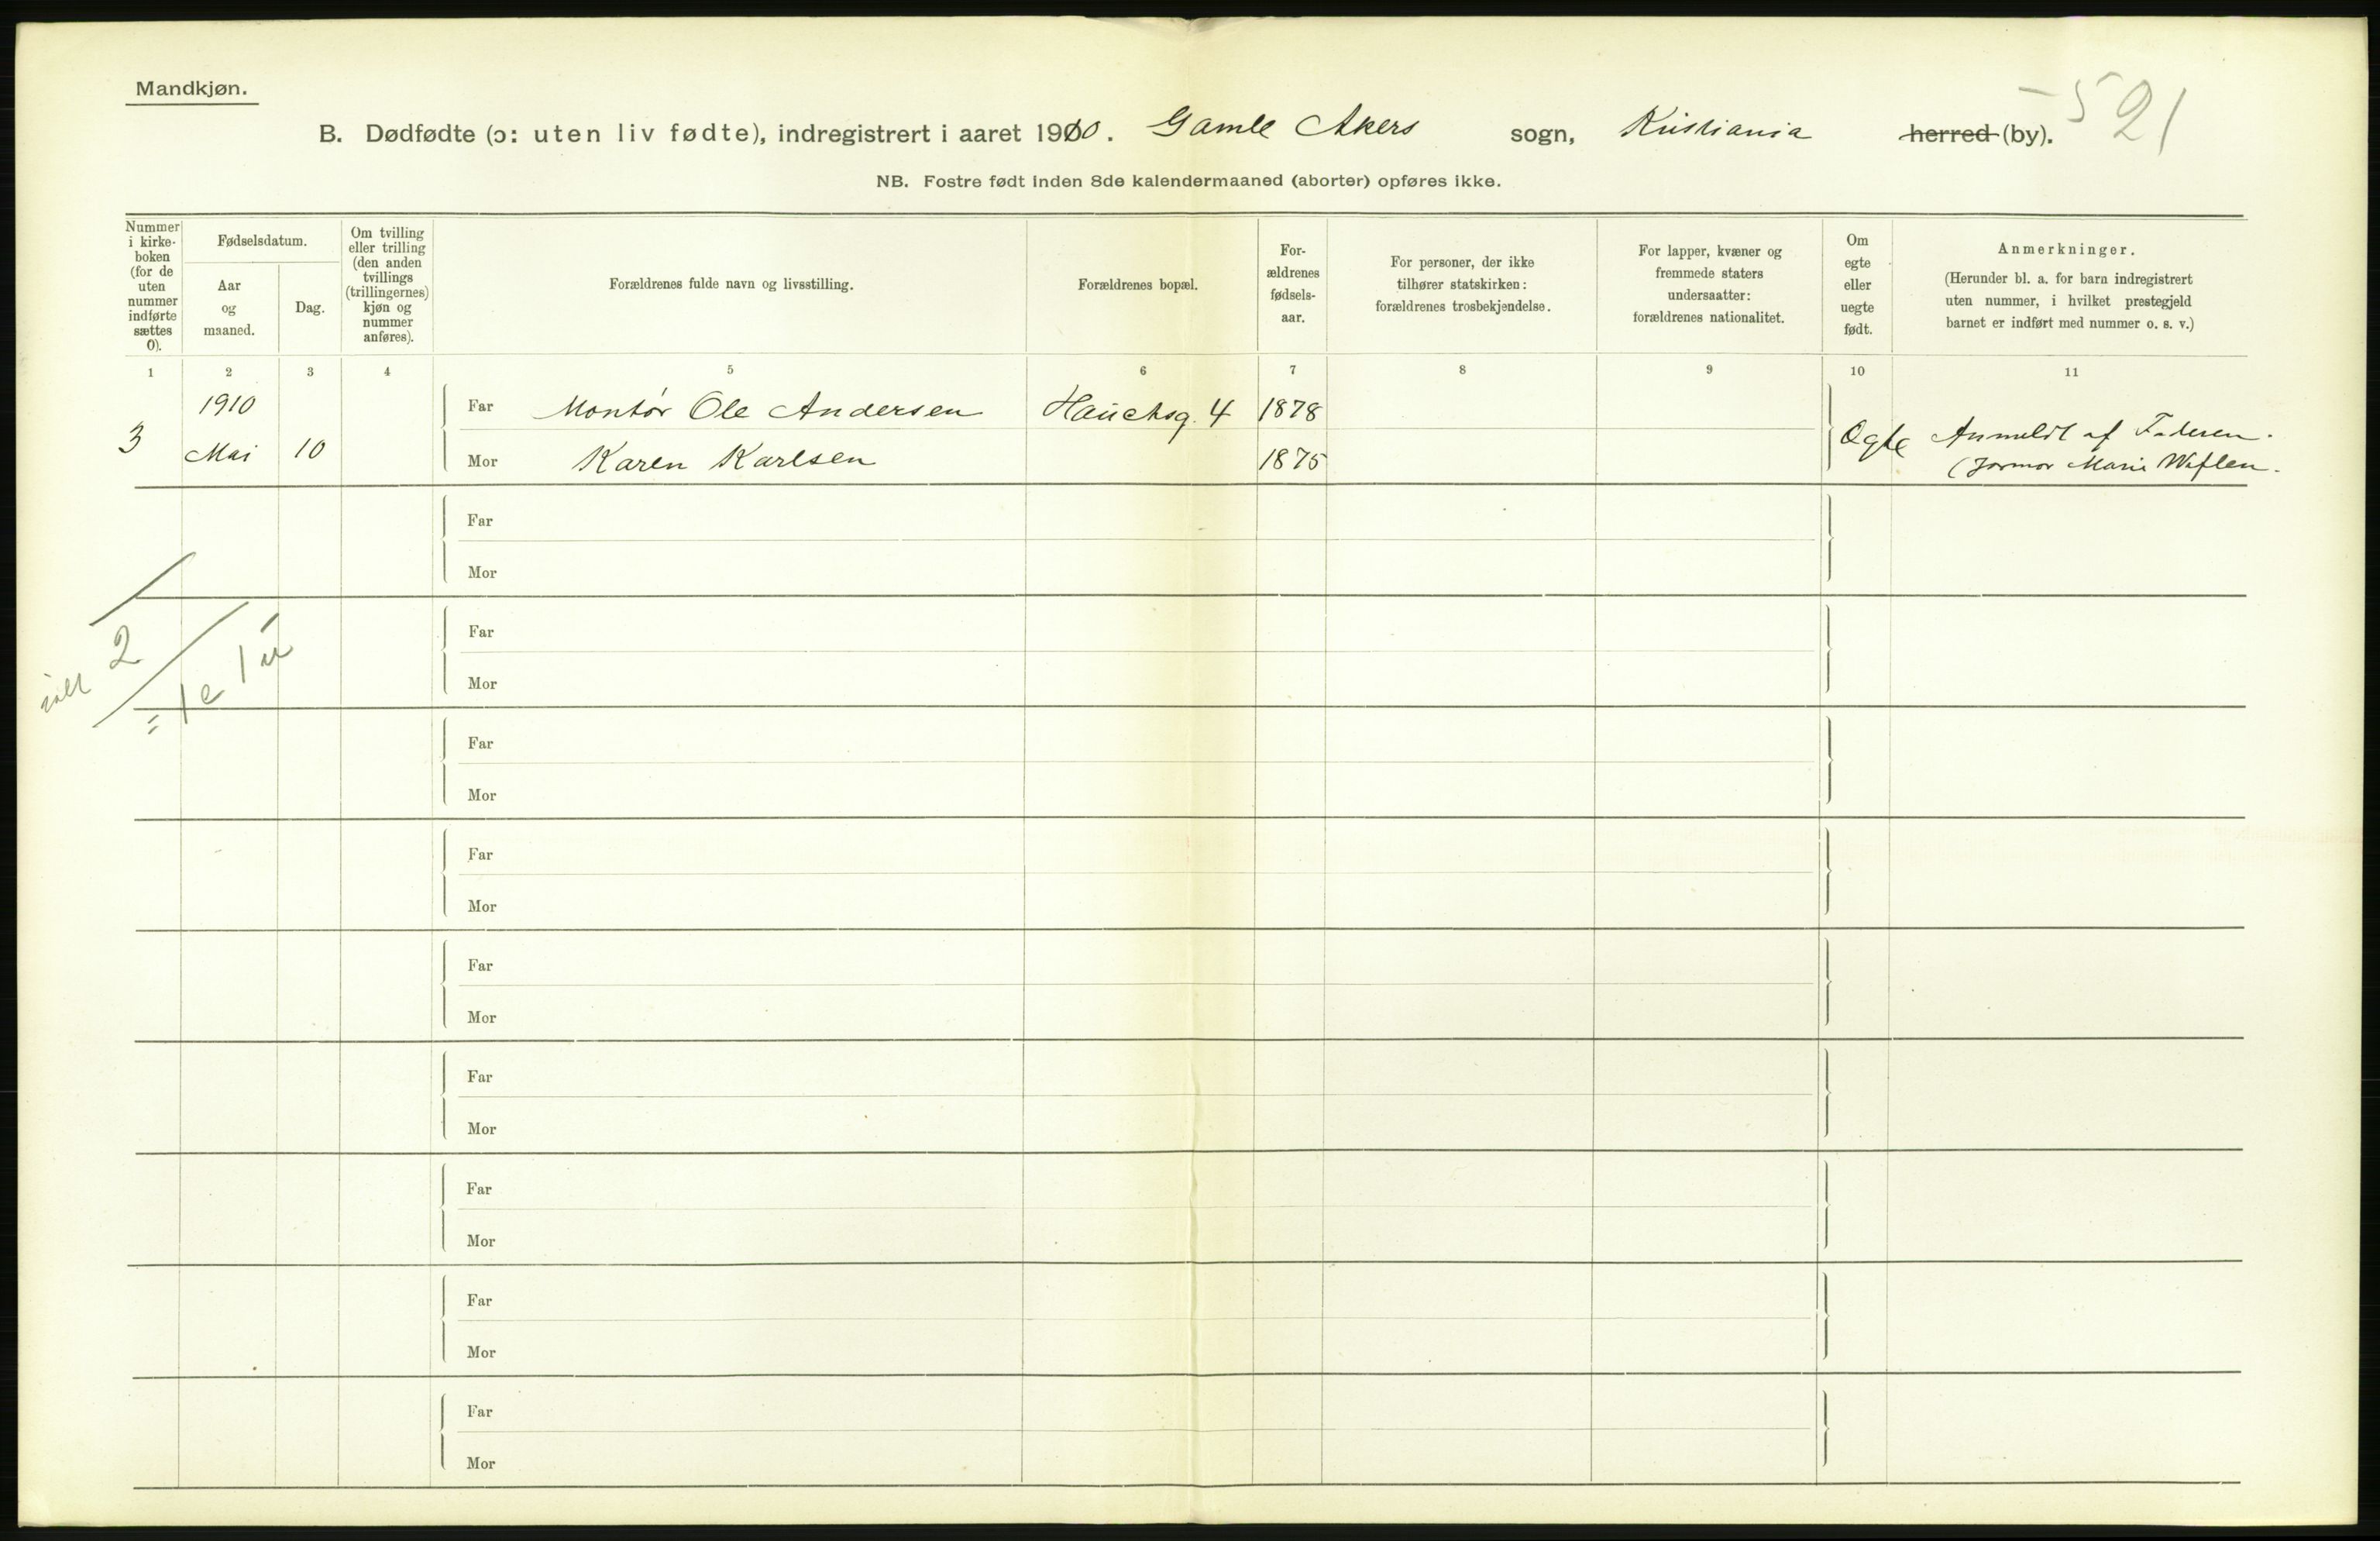 Mandkjøn.
521
B. Dødfødte (ɔ: uten liv fødte), indregistrert i aaret 1910. Gamle Akers sogn, Kristiania herred (by).
NB. Fostre født inden 8de kalendermaaned (aborter) opføres ikke.
Nummer
i kirke-
boken
(for de
uten
nummer
indførte
sættes
0).
Fødselsdatum.
Aar
og
maaned.
Dag.
Om tvilling
eller trilling
(den anden
tvillings
(trillingernes)
kjøn og
nummer
anføres).
Forældrenes fulde navn og livsstilling.
Forældrenes bopæl.
For-
ældrenes
fødsels-
aar.
For personer, der ikke
tilhører statskirken:
forældrenes trosbekjendelse.
For lapper, kvæner og
fremmede staters
undersaatter:
forældrenes nationalitet.
Om
egte
eller
uegte
født.
Anmerkninger.
(Herunder bl. a. for barn indregistrert
uten nummer, i hvilket prestegjeld
barnet er indført med nummer o. s. v.)
1 2 3 4 5 6 7 8 9 10 11
1910 Far Montør Ole Andersen Hauchsg. 4 1878
3 Mai 10 Mor Karen Karlsen 1875 Egte Anmeldt af Faderen.
(Jormor Marie
Far
Mor
2
= 1 e 1 u
Far
Mor
Far
Mor
Far
Mor
Far
Mor
Far
Mor
Far
Mor
Far
Mor
Far
Mor